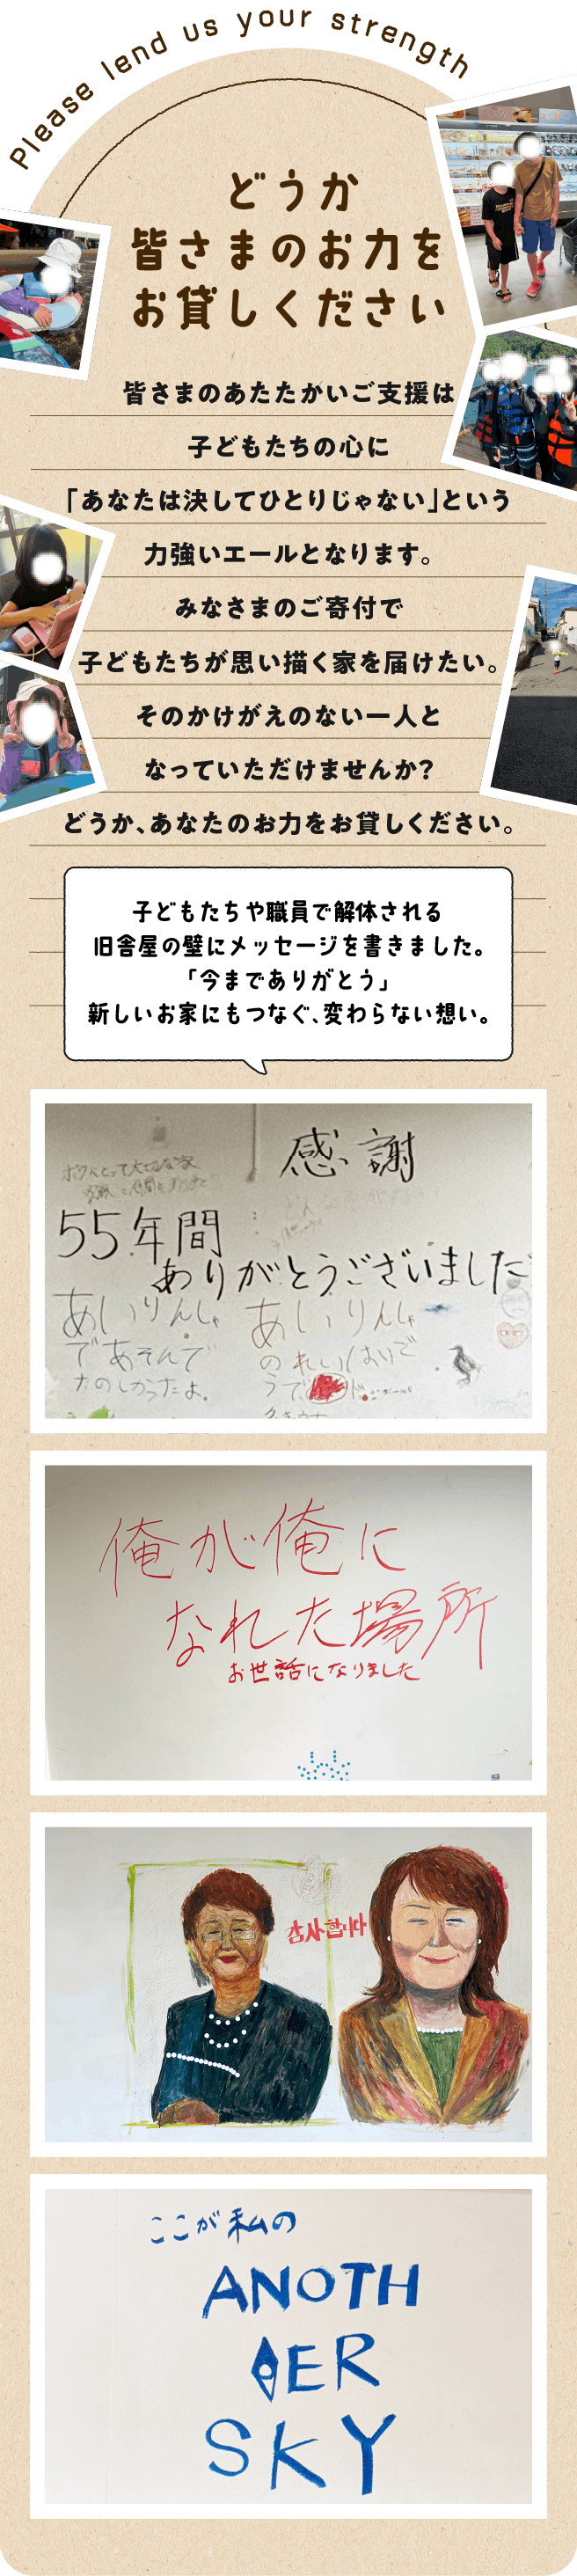 Please lend us your strength
どうか
皆さまのお力を
お貸しください
皆さまのあたたかいご支援は
子どもたちの心に
「あなたは決してひとりじゃない」という
力強いエールとなります。
みなさまのご寄付で
子どもたちが思い描く家を届けたい。
そのかけがえのない一人と
なっていただけませんか?
どうか、あなたのお力をお貸しください。
子どもたちや職員で解体される
旧舎屋の壁にメッセージを書きました。
「今までありがとう」
新しいお家にもつなぐ、変わらない想い。
感謝
55年間
ありがとうございました
あいりんしゃ
であそんで
たのしかったよ.
あいりんしゃ
俺が俺に
なれた場所
お世話になりました
감사합니다
ここが私の
ANOTH
ER
SKY